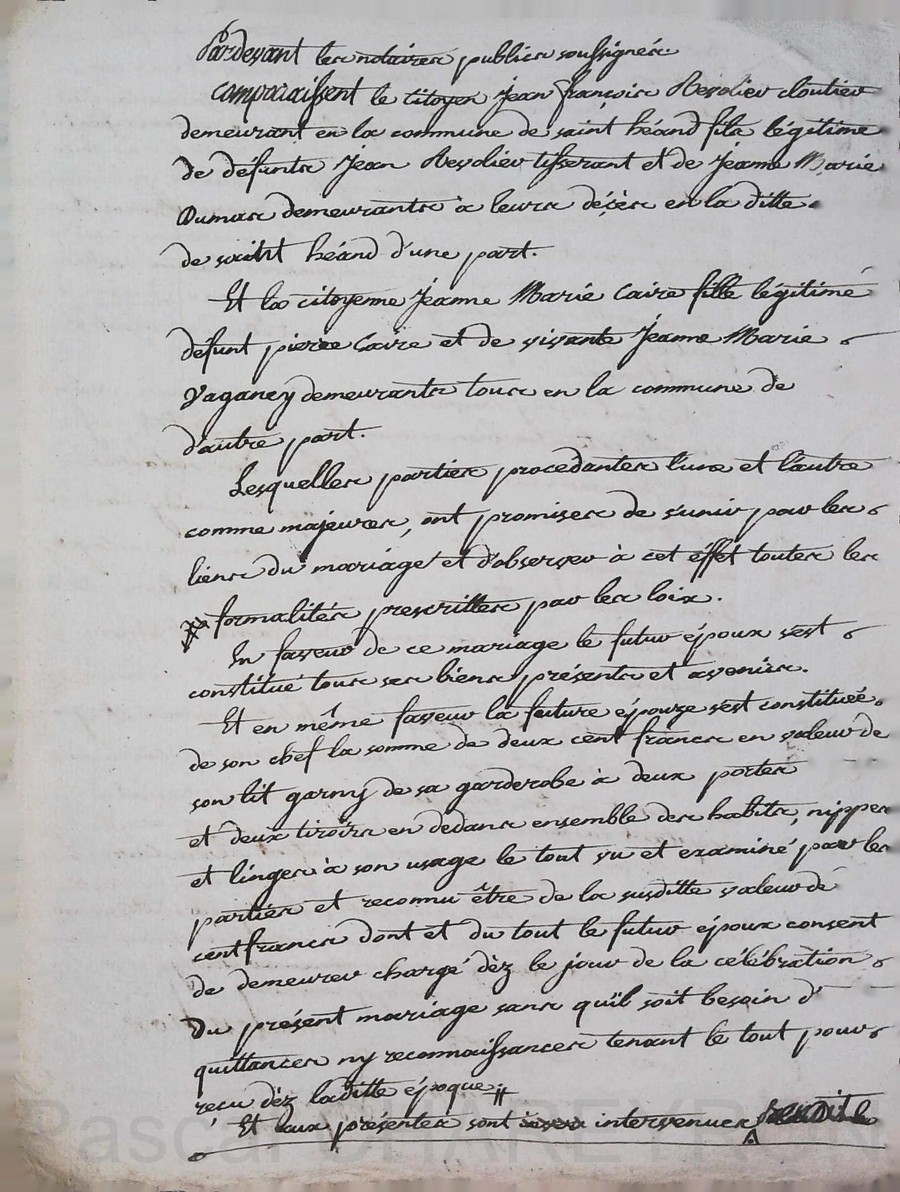 Pardevant les notaires publics soussignés
comparaissent le citoyen Jean françois Revolier cloutier
demeurant en la commune de saint héand fils légitime
de défunts Jean Revolier tisserant et de Jeanne Marie
Dumas demeurants à leurs décès en la ditte
de saint héand d'une part.
Et la citoyenne Jeanne Marie Caire fille légitime
défunt pierre Caire et de vivante Jeanne Marie
Vaganey demeurants tous en la commune de
d'autre part.
Lesquelles parties procedantes l'une et l'autre
comme majeures, ont promises de s'unir par les
liens du mariage et d'observer à cet éffet toutes les
formalités prescrittes par les loix.
En faveur de ce mariage le futur époux s'est
constitué tous ses biens présents et avenirs.
Et en même faveur la future épouze s'est constituée
de son chef la somme de deux cent francs en valeur de
son lit garny de sa garderobe à deux portes
et deux tiroirs en dedans ensemble des habits, nippes
et linges à son usage le tout vu et examiné par les
parties et reconnu être de la susditte valeur de
cent francs dont et du tout le futur époux consent
de demeurer chargé dèz le jour de la célébration
du présent mariage sans quïl soit besoin d'
quittances ny reconnaissances tenant le tout pour
reçu dèz laditte époque
Et aux présentes sont intervenues
Pascal CHAREYRON